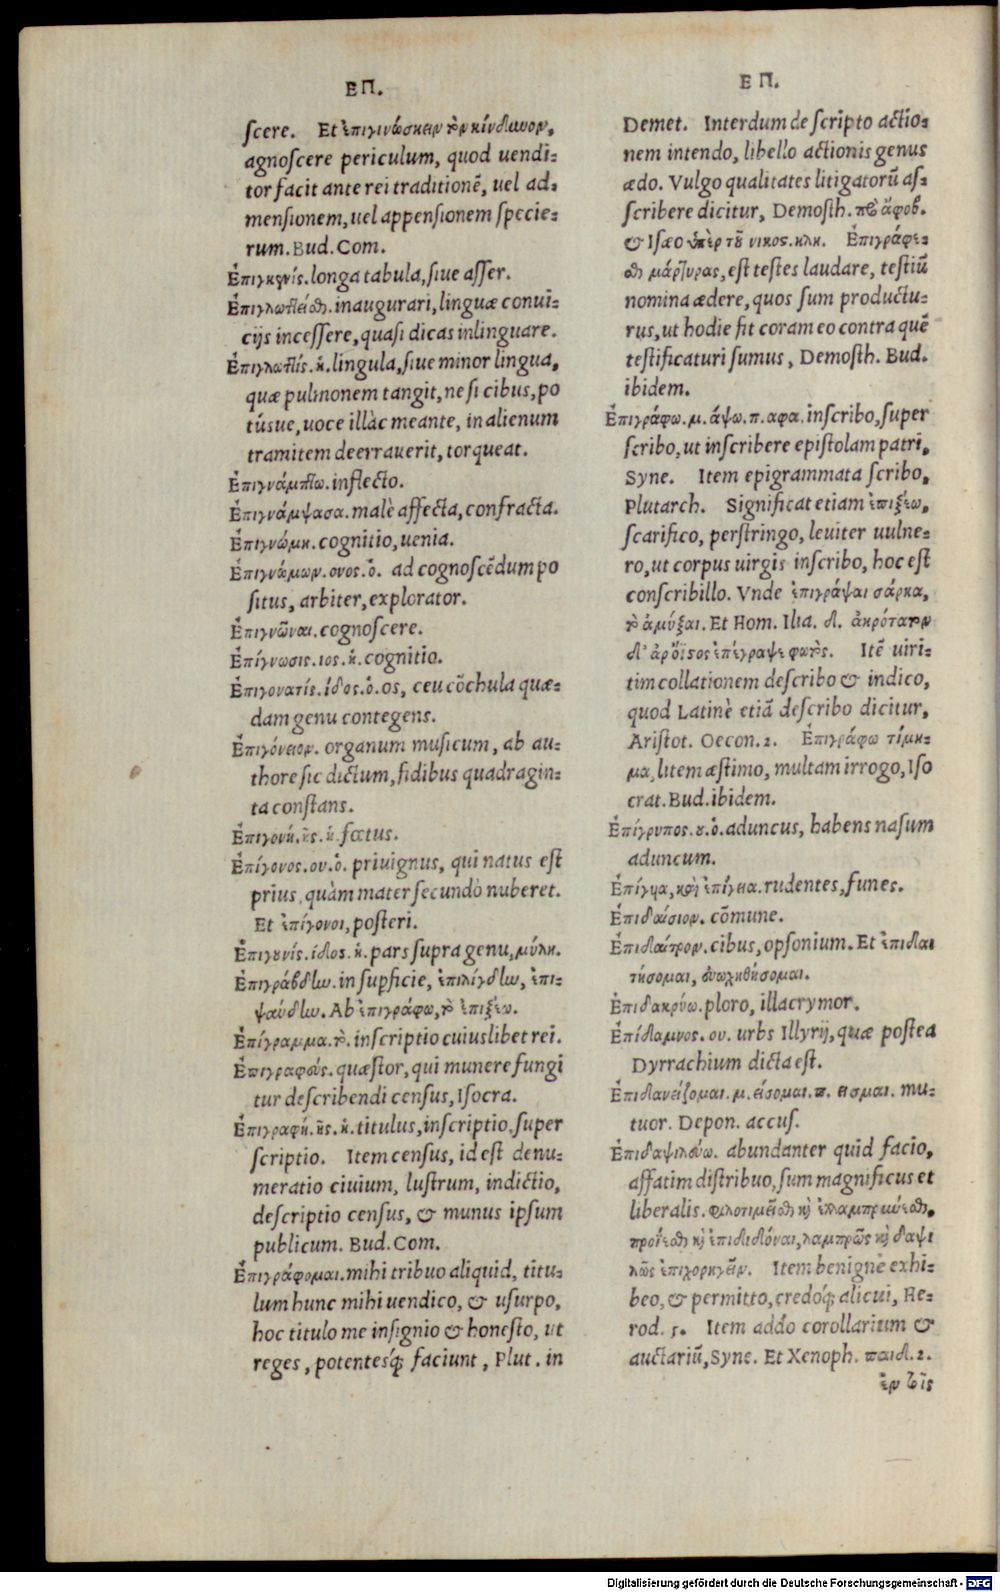 ΕΠ.
ſcere. Et ἐπιγινώσκειν τὸν κίνδυνον,
agnoſcere periculum, quod uendi:
tor facit ante rei traditionẽ, uel ad.
menſionem, uel appenſionem ſpecie:
rum. Bud. Com.
Ἐπιγκενίς. longa tabula, ſiue aſſer.
Ἐπιγλωτ̃τεῖσθαι. inaugurari, linguæ conui:
cijs inceſſere, quaſi dicas inlinguare.
Ἐπιγλωττίς. ἡ. lingula, ſiue minor lingua,
quæ pulmonem tangit, ne ſi cibus, po
túsue, uoce illàc meante, in alienum
tramitem deerrauerit, torqueat.
Ἐπιγνάμπτω. inflecto.
Ἐπιγνάμψασα. malè affecta, confracta.
Ἐπιγνώμη. cognitio, uenia.
Ἐπιγνώμων. ονος. ὁ. ad cognoſcẽdum po
ſitus, arbiter, explorator.
Ἐπιγνῶναι. cognoſcere.
Ἐπίγνωσις. ιος. ἡ. cognitio.
Ἐπιγονατίς. ίδος. ὁ. os, ceu cõchula quæ:
dam genu contegens.
Ἐπιγόνειον. organum muſicum, ab au:
thore ſic dictum, fidibus quadragin:
ta conſtans.
Ἐπιγονή. ῆς. ἡ. fœtus.
Ἐπίγονος. ου. ὁ. priuignus, qui natus eſt
prius, quàm mater ſecundò nuberet.
Et ἐπίγονοι, poſteri.
Ἐπιγουνίς. ίδος. ἡ. pars ſupra genu, μύλη.
Ἐπιγράβδην. in ſupficie, ἐπιλίγδην, ἐπι-
ψαύδην. Ab ἐπιγράφω, τὸ ἐπιξέω.
Ἐπίγραμμα. τὸ. inſcriptio cuiuslibet rei.
Ἐπιγραφεύς. quæſtor, qui munere fungi
tur deſcribendi cenſus, Iſocra.
Ἐπιγραφή. ῆς. ἡ. titulus, inſcriptio, ſuper
ſcriptio. Item cenſus, id eſt denu:
meratio ciuium, luſtrum, indictio,
deſcriptio cenſus, & munus ipſum
publicum. Bud. Com.
Ἐπιγράφομαι. mihi tribuo aliquid, titu:
lum hunc mihi uendico, & uſurpo,
hoc titulo me inſignio & honeſto, ut
reges, potentesq́; faciunt, Plut. in
ΕΠ.
Demet. Interdum de ſcripto actio:
nem intendo, libello actionis genus
ædo. Vulgo qualitates litigatorũ aſ:
ſcribere dicitur, Demoſth. πρὸς ἄφοβ.
& Iſæo ὑπὲρ τοῦ νικος. κλη. Ἐπιγράφε:
σθαι μάρτυρας, eſt teſtes laudare, teſtiũ
nomina ædere, quos ſum productu:
rus, ut hodie fit coram eo contra quẽ
teſtificaturi ſumus, Demoſth. Bud.
ibidem.
Ἐπιγράφω. μ. άψω. π. αφα. inſcribo, ſuper
ſcribo, ut inſcribere epiſtolam patri,
Syne. Item epigrammata ſcribo,
Plutarch. Significat etiam ἐπιξέω,
ſcarifico, perſtringo, leuiter uulne:
ro, ut corpus uirgis inſcribo, hoc eſt
conſcribillo. Vnde ἐπιγράψαι σάρκα,
τὸ ἀμύξαι. Et Hom. Ilia. δ. ἀκρότατον
δ᾽ ἀρ᾽ ὀϊστὸς ἐπέγραψε φωτός. Itẽ uiri:
tim collationem deſcribo & indico,
quod Latinè etiã deſcribo dicitur,
Ariſtot. Oecon. 2. Ἐπιγράφω τίμη:
μα, litem æſtimo, multam irrogo, Iſo
crat. Bud. ibidem.
Ἐπίγρυπος. ου. ὁ. aduncus, habens naſum
aduncum.
Ἐπίγυα, καὶ ἐπίγεια. rudentes, funes.
Ἐπιδαίσιον. cõmune.
Ἐπιδαίτρον. cibus, opſonium. Et ἐπιδαι
τήσομαι, εὐωχηθήσομαι.
Ἐπιδακρύω. ploro, illacrymor.
Ἐπίδαμνος. ου. urbs Illyrij, quæ poſtea
Dyrrachium dicta eſt.
Ἐπιδανείζομαι. μ. είσομαι. π. εισμαι. mu:
tuor. Depon. accuſ.
Ἐπιδαψιλεύω. abundanter quid facio,
affatim diſtribuo, ſum magnificus et
liberalis. φιλοτιμεῖσθαι καὶ ἐλλαμπρύνεσθαι,
προΐεσθαι καὶ ἐπιδιδόναι, λαμπρῶς καὶ δαψι
λῶς ἐπιχορηγεῖν. Item benignè exhi:
beo, & permitto, credoq́; alicui, He:
rod. 5. Item addo corollarium &
auctariũ, Syne. Et Xenoph. παιδ. 2.
ἐν τοῖς
Digitalisierung gefördert durch die Deutsche Forschungsgemeinschaft - DFG